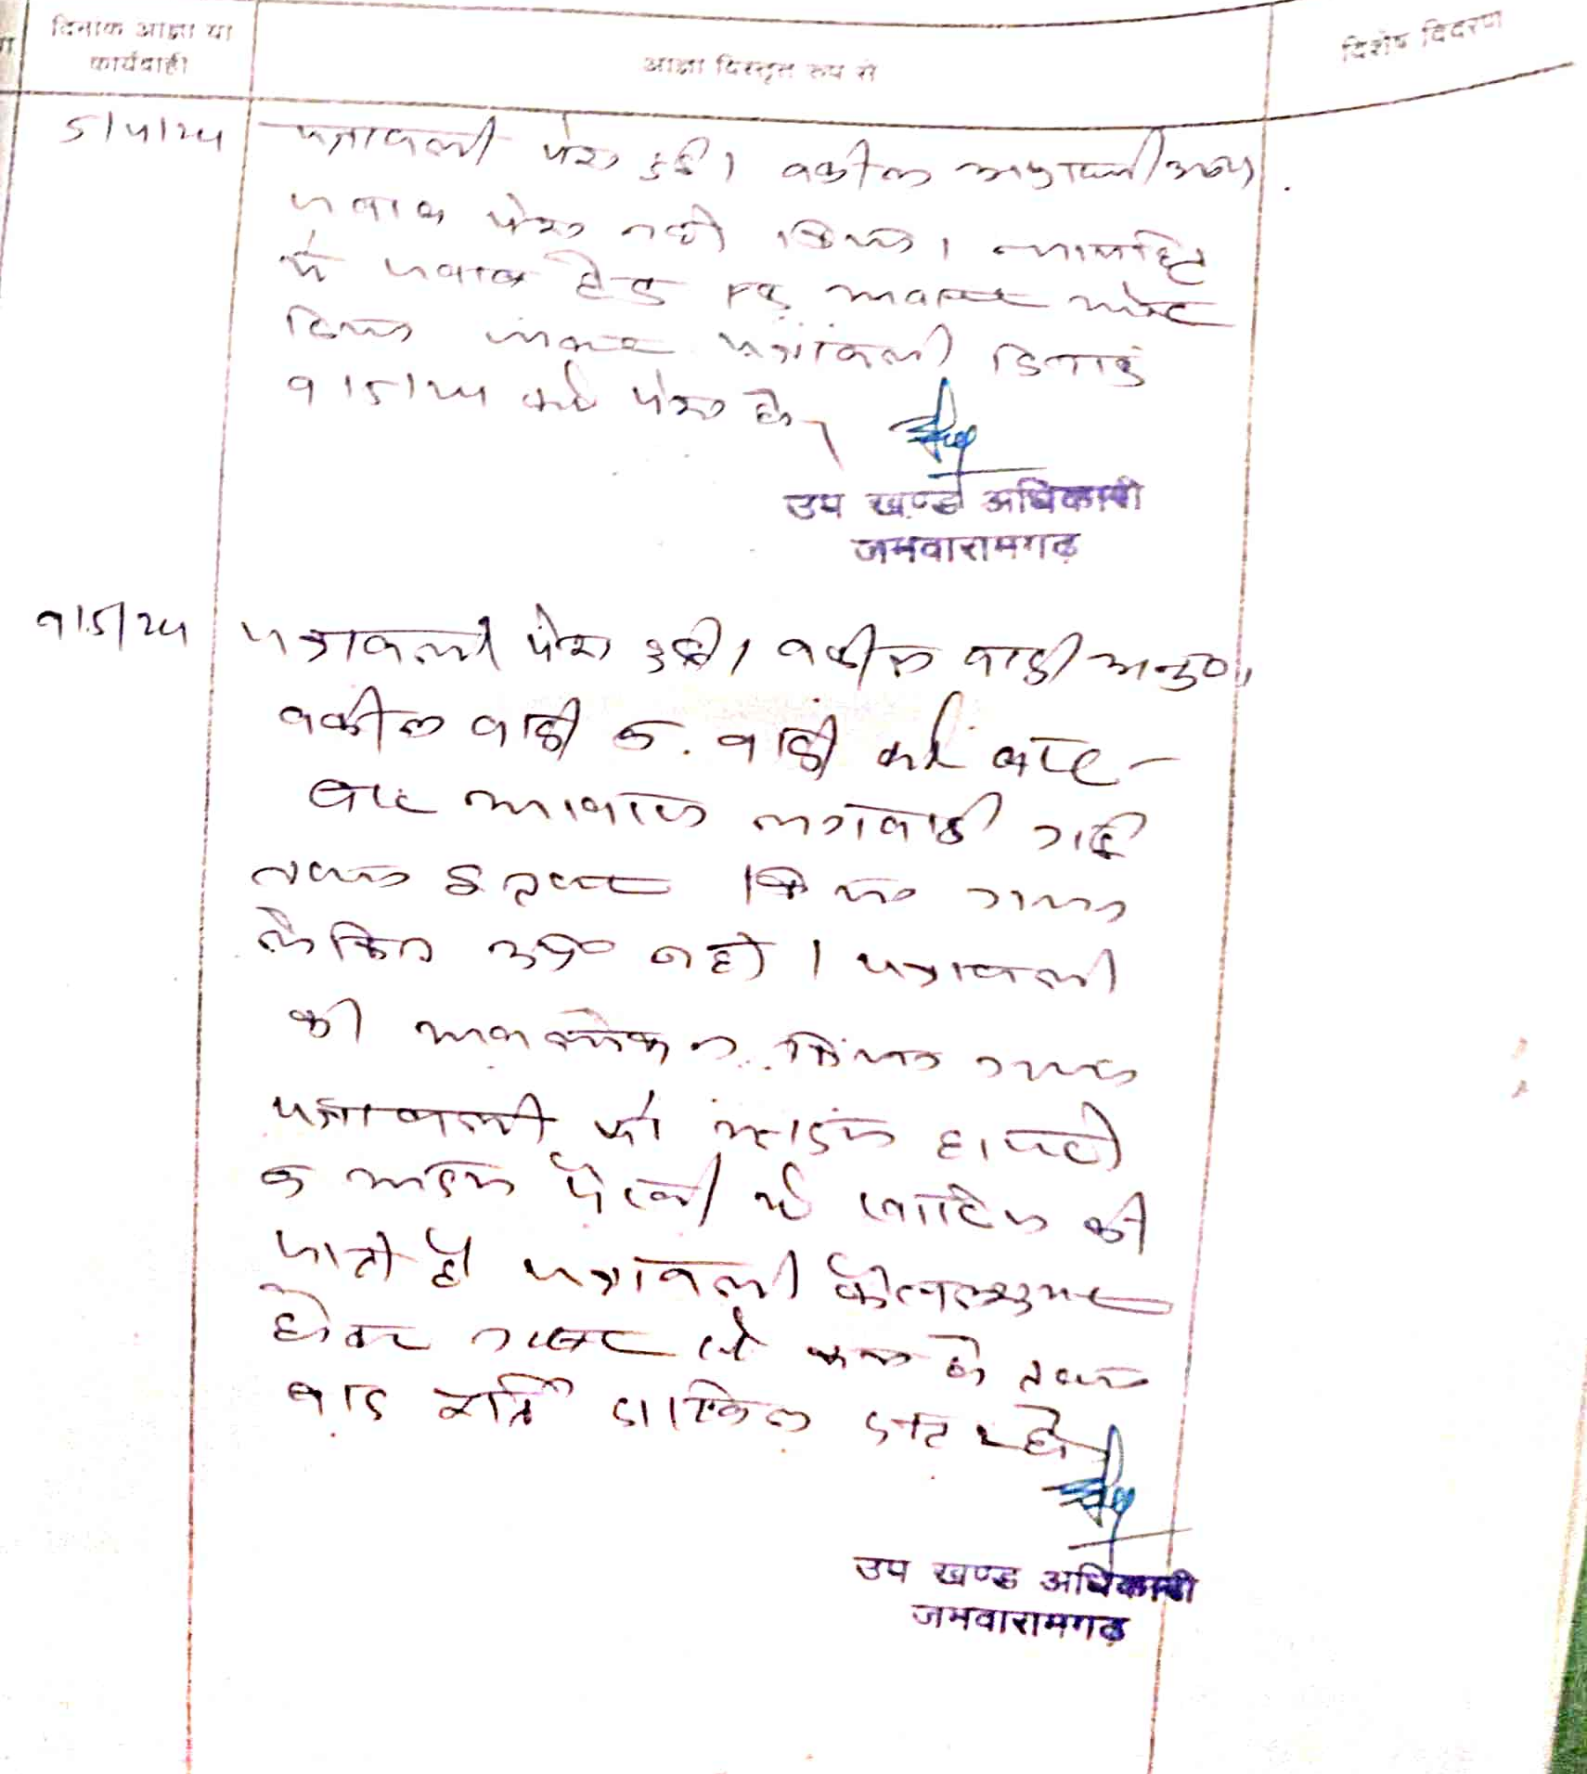 दिनांक आज्ञा या
कार्यवाही
आज्ञा विस्तृत रूप से
विशेष विवरण
5/4/24 पत्रावली पेश हुई। वकील अप्रार्थी उप०।
जवाब पेश नही किया। न्यायहित
मे जवाब हेतु एक अवसर और
दिया जाकर पत्रावली दिनांक
9/5/24 को पेश हो
उप खण्ड अधिकारी
जमवारामगढ़
9/5/24 पत्रावली पेश हुई। वकील वादी अनु०।
वकील वादी व वादी को बार-
बार आवाज लगवाई गई
तथा इंतजार किया गया
लेकिन उप० नही। पत्रावली
का अवलोकन किया गया
पत्रावली को अदम हाजरी
व अदम पैरवी मे खारिज की
जाती है पत्रावली फैसलशुमार
होकर नम्बर से कम हो तथा
बाद पूर्ति दाखिल दफ्तर हो
उप खण्ड अधिकारी
जमवारामगढ़